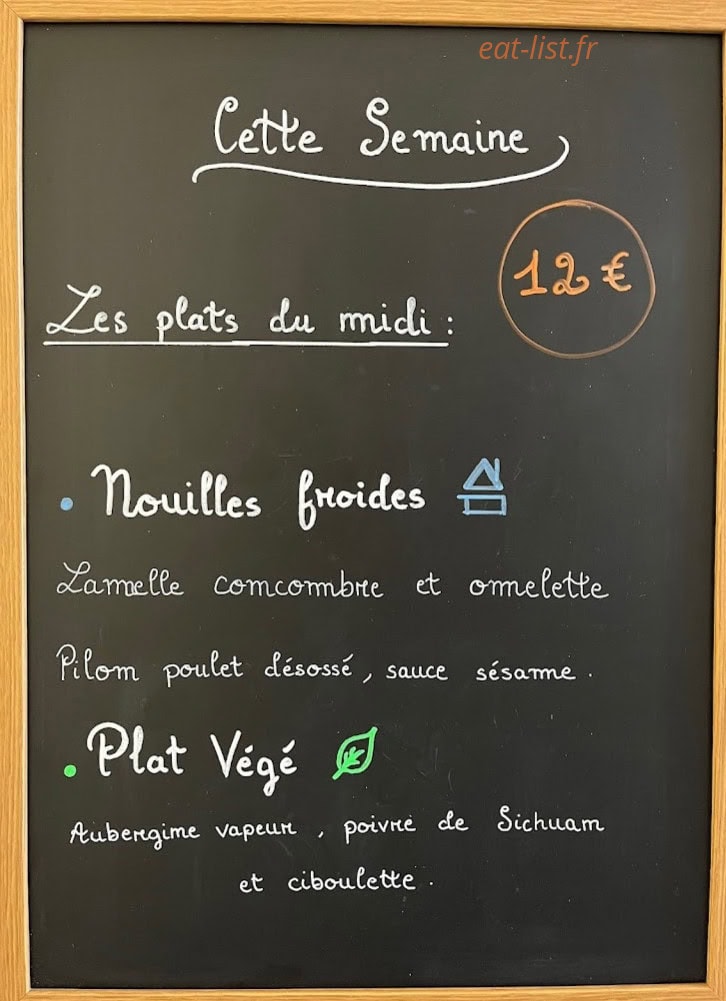 eat-list.fr
Cette Semaine
12 €
Les plats du midi :
• Nouilles froides
Lamelle concombre et omelette
Pilon poulet désossé, sauce sésame.
• Plat Végé
Aubergine vapeur, poivre de Sichuan
et ciboulette.